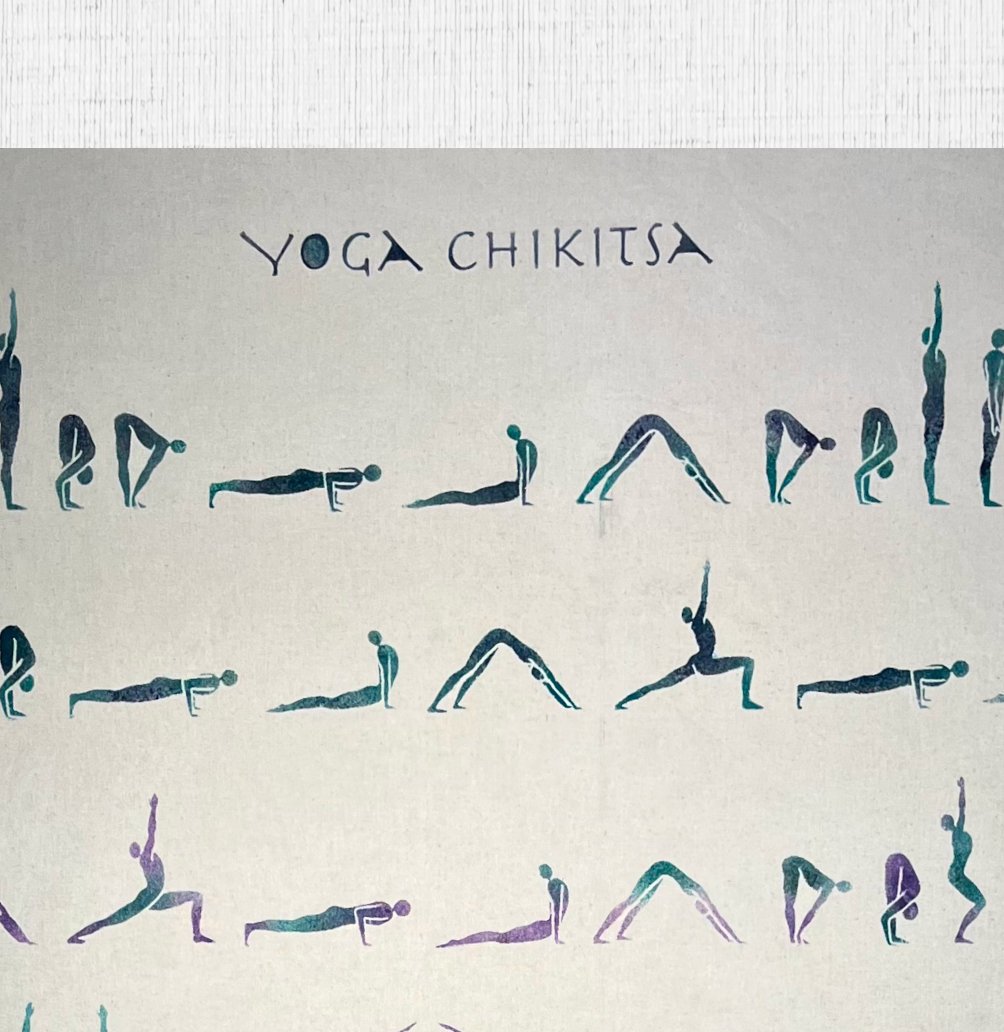 YOGA CHIKITSA